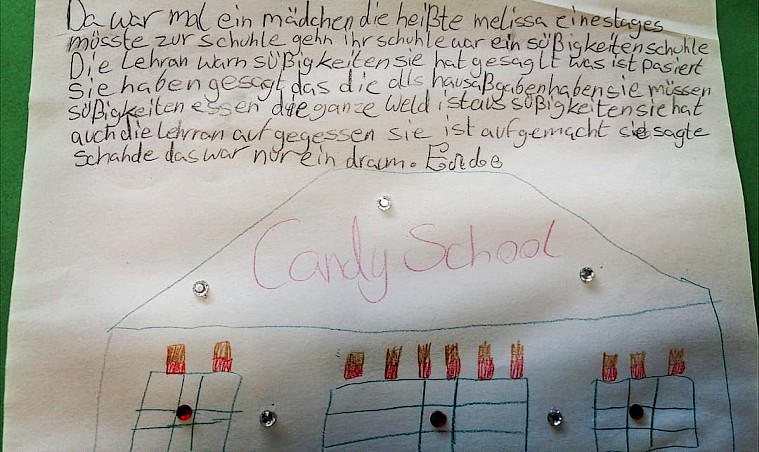 Da war mal ein mädchen die heißte melissa einestages
müsste zur schuhle gehn ihr schuhle war ein süßigkeitenschuhle
Die Lehran warn süßigkeiten sie hat gesaglt was ist pasiert
sie haben gesagt das die als hausaßgabenhaben sie müssen
süßigkeiten essen die ganze weld ist aus süßigkeiten sie hat
auch die lehrran auf gegessen sie ist aufgemacht sie sagte
schahde das war nur ein draum. Ende
Candy School